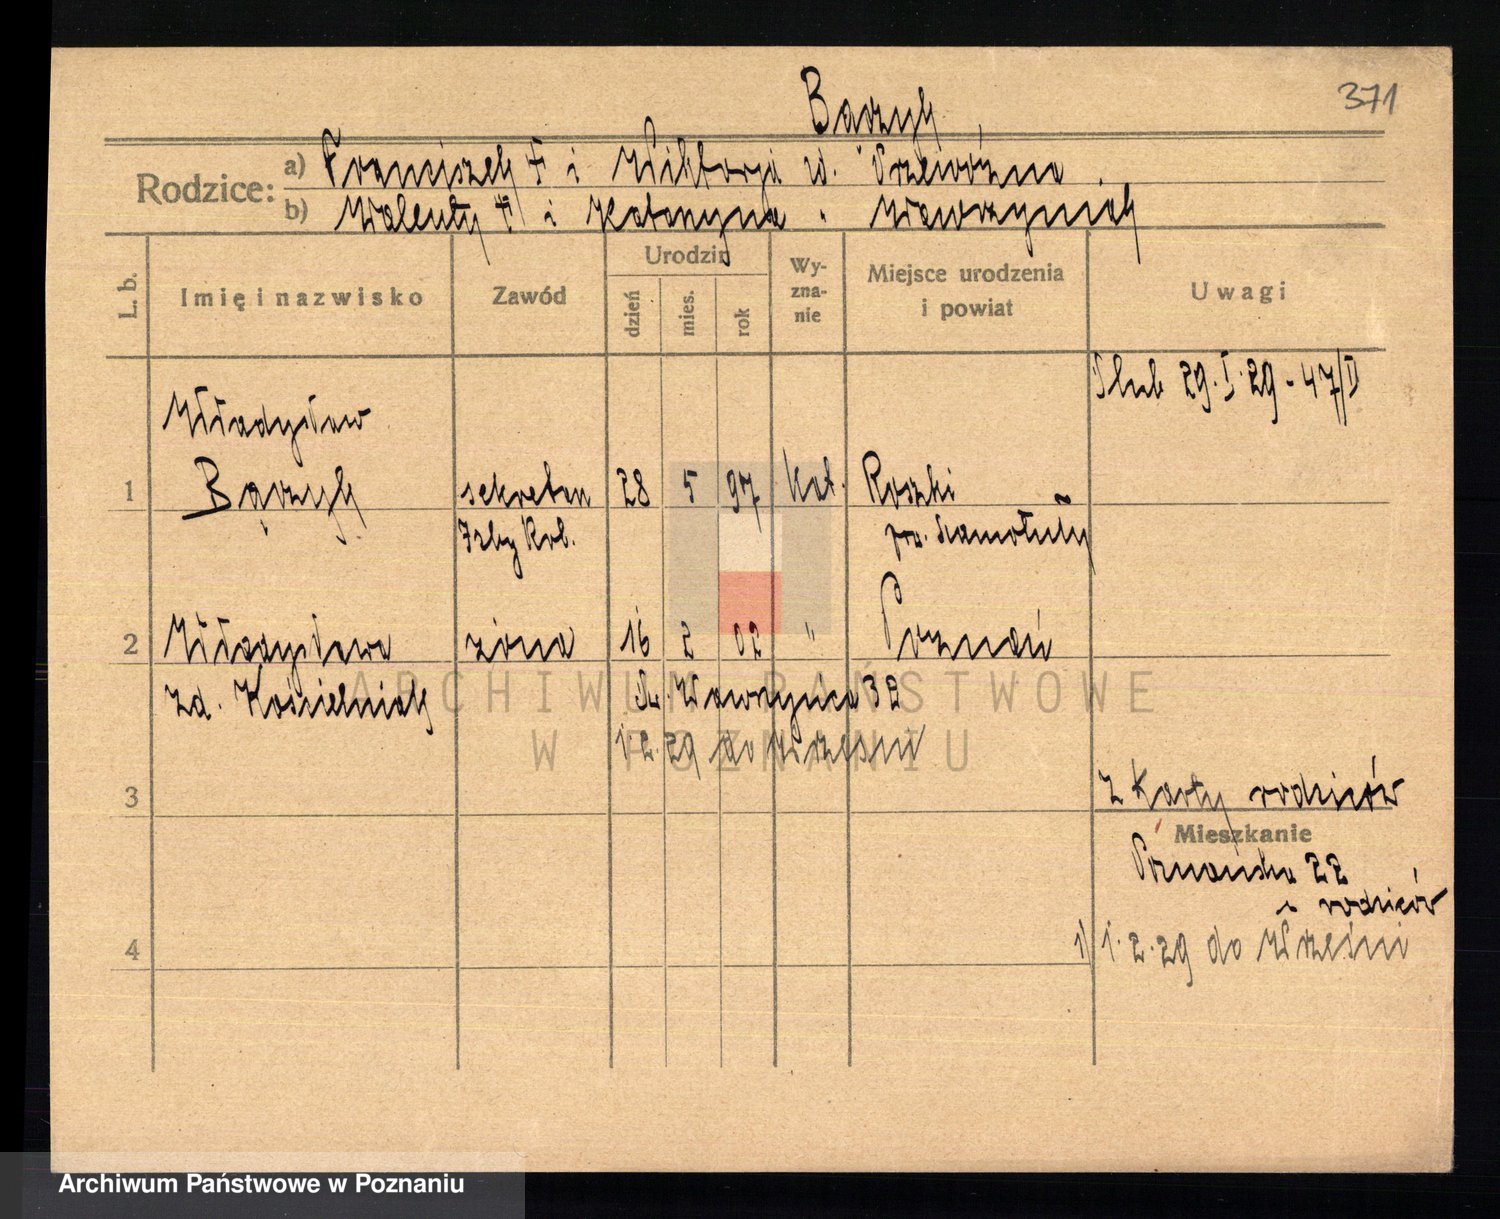 371
Bączyk
Rodzice:
a) Franciszek † i Wiktorja ur. Przewoźna
b) Walenty † i Katarzyna " Wawrzyniak
L. b.
Imię i nazwisko
Zawód
Urodzin
dzień
mies.
rok
Wy-
zna-
nie
Miejsce urodzenia
i powiat
Uwagi
Ślub 29.I.29 - 47/II
Władysław
1 Bączyk sekretarz 28 5 97 Kat. Roszki
Izby Rob. pow. Szamotuły
2 Władysława żona 16 2 02 " Poznań
zd. Kościelniak Św. Wawrzyńca 32
1.2.29 do Wrześni
3
Z Karty rodziców
Mieszkanie
Poznańska 22
rodziców
4
1) 1.2.29 do Wrześni
ARCHIWUM PAŃSTWOWE
W POZNANIU
Archiwum Państwowe w Poznaniu